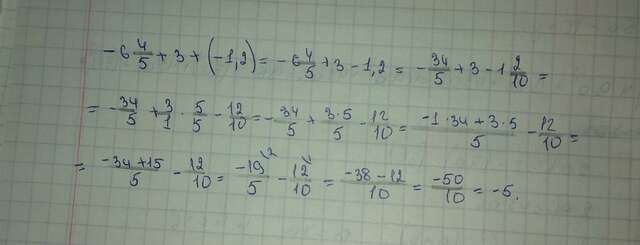 -6 4/5 + 3 + (-1,2) = -6 4/5 + 3 - 1,2 = -34/5 + 3 - 1 2/10 =
= -34/5 + 3/1 · 5/5 - 12/10 = -34/5 + 3·5/5 - 12/10 = -1·34+3·5/5 - 12/10 =
= -34+15/5 - 12/10 = -19\2/5 - 12\1/10 = -38-12/10 = -50/10 = -5.